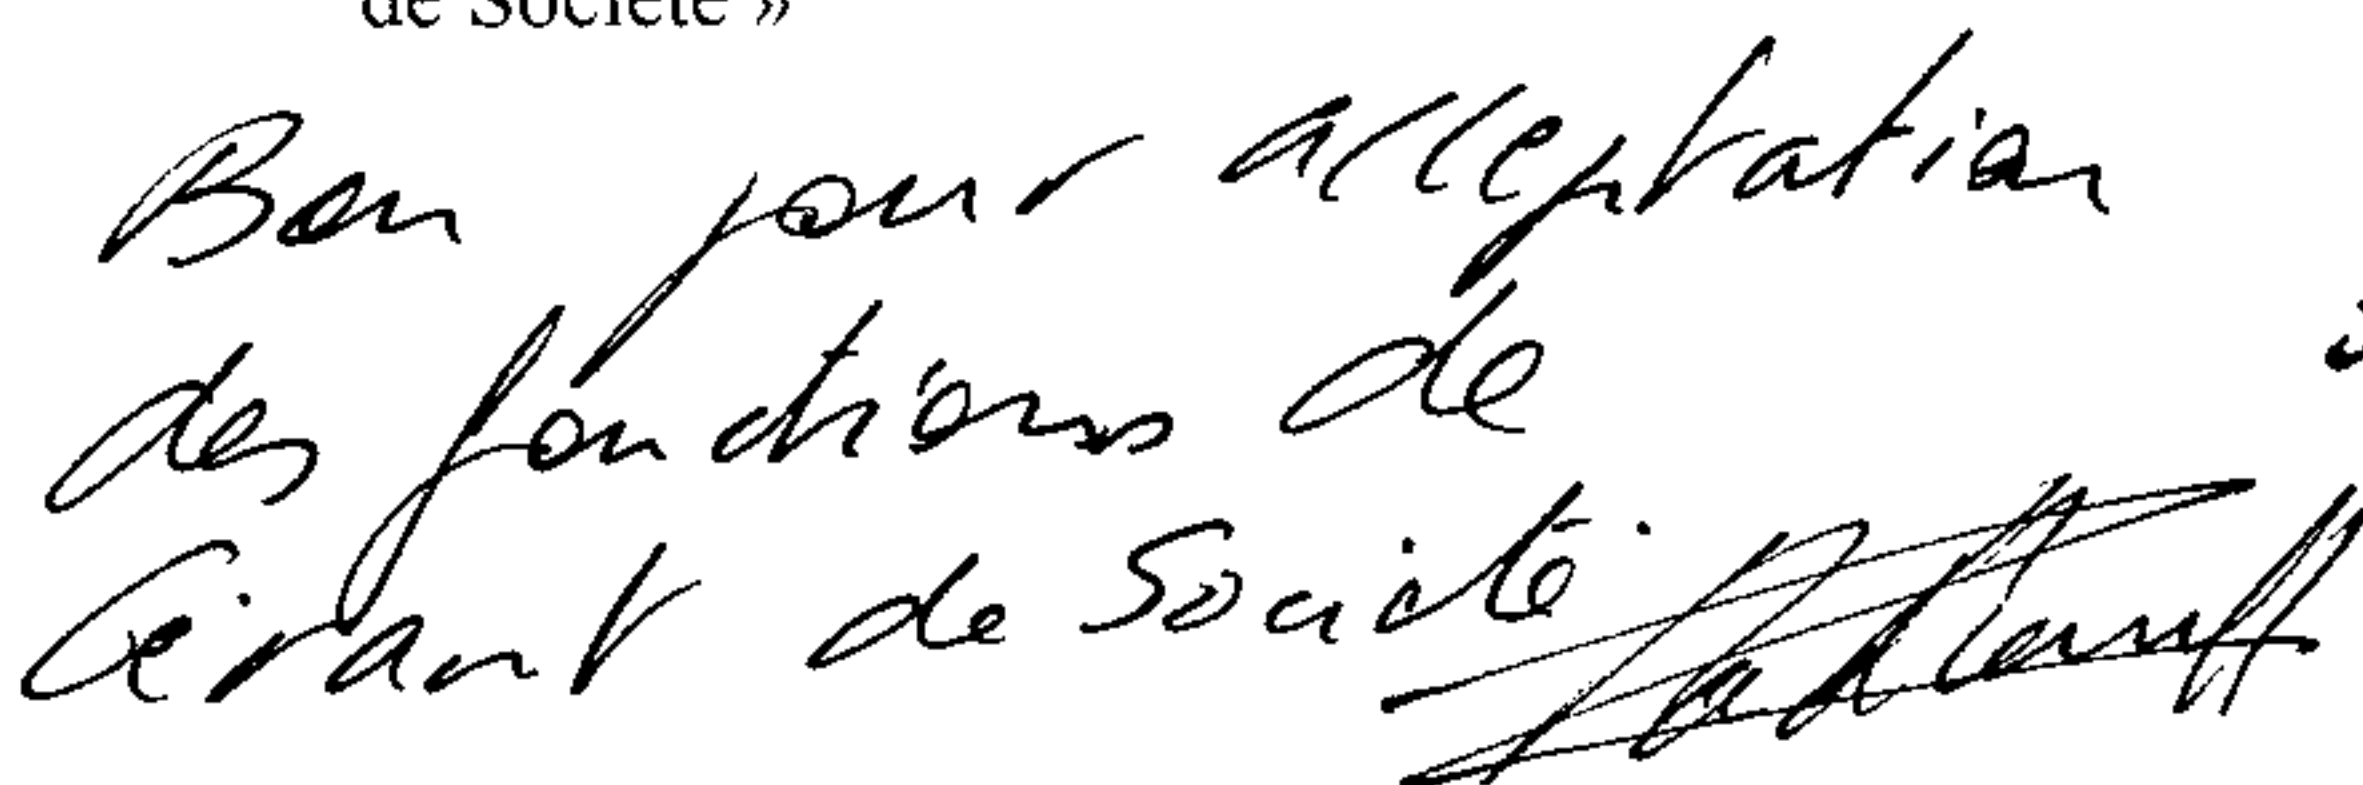 de Société »
Bon pour acceptation
des fonctions de
Gérant de Société